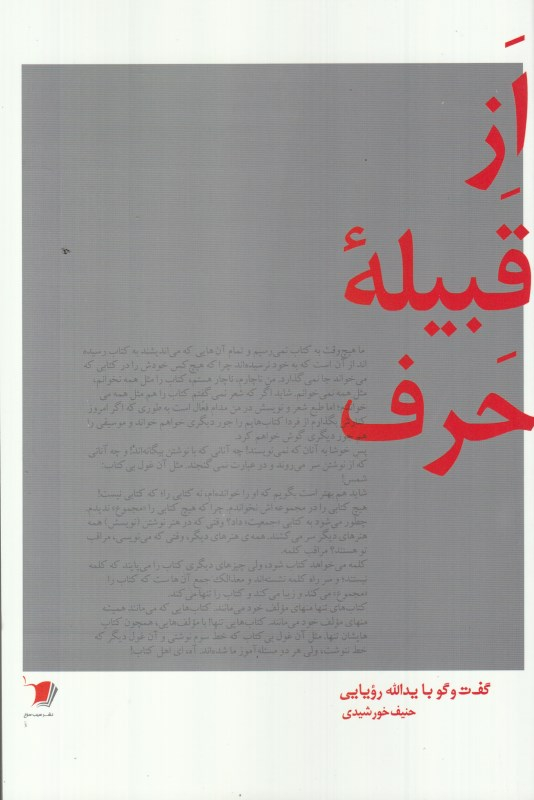 اَزِ
قبیلهٔ
حَرف
ما هیچ‌وقت به کتاب نمی‌رسیم و تمام آن‌هایی که می‌اندیشند به کتاب رسیده
اند از آن است که به خود نرسیده‌اند. چرا که هیچ‌کس خودش را در کتابی که
می‌خواند جا نمی‌گذارد. من ناچارم، ناچار هستم، کتاب را مثل همه نخوانم.
مثل همه نمی‌خوانم. شاید اگر که شعر نمی‌گفتم کتاب را هم مثل همه می
خواندم؛ اما طبع شعر و نویسش در من مدام فعال است به طوری که اگر امروز
بگذارم از فردا کتاب‌هایم را جور دیگری خواهم خواند و موسیقی را
هم جور دیگری گوش خواهم کرد.
پس خوشا به آنان که نمی‌نویسند! چه آنانی که با نوشتن بیگانه‌اند! و چه آنانی
که از نوشتن سر می‌روند و در عبارت نمی‌گنجند. مثل آن غول بی‌کتاب:
شمس!
شاید هم بهتر است بگویم که او را خوانده‌ام، نه کتابی را؛ که کتابی نیست!
هیچ کتابی را در مجموعه‌اش نخوانده. چرا که هیچ کتابی را «مجموع» ندیدم.
چطور می‌شود به کتابی «جمعیت» داد؟ وقتی که در هنر نوشتن (نویسش) همه
هنرهای دیگر سر می‌کشند. همه‌ی هنرهای دیگر، وقتی که می‌نویسی، مراقب
تو هستند؟ مراقب کلمه.
کلمه می‌خواهد کتاب شود، ولی چیزهای دیگری کتاب را می‌پایند که کلمه
نیستند؛ و سر راه کلمه نشسته‌اند و معذالک جمع آن‌هاست که کتاب را
«مجموع» می‌کند و زیبا می‌کند و کتاب را تنها می‌کند.
کتاب‌های تنها منهای مؤلف خود می‌مانند. کتاب‌هایی که می‌مانند همیشه
منهای مؤلف خود می‌مانند. کتاب‌هایی تنها! با مؤلف‌هایی، همچون کتاب
هایشان تنها. مثل آن غول بی‌کتاب که خط سوم نوشتی و آن غول دیگر که
خط ننوشت، ولی هر دو مسئله‌آموز ما شده‌اند. آه، ای اهل کتاب!
گفت‌وگو با یدالله رؤیایی
حنیف خورشیدی